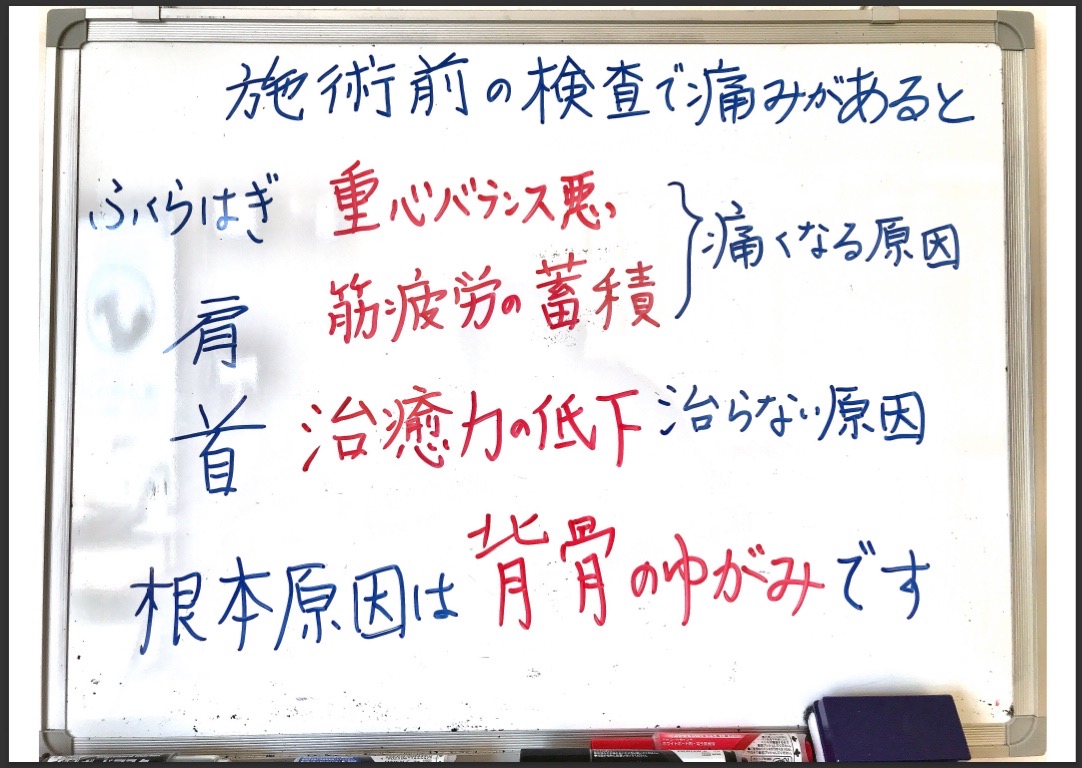 施術前の検査で痛みがあると
ふくらはぎ 重心バランス悪い } 痛くなる原因
肩 筋疲労の蓄積
首 治癒力の低下 治らない原因
根本原因は背骨のゆがみです